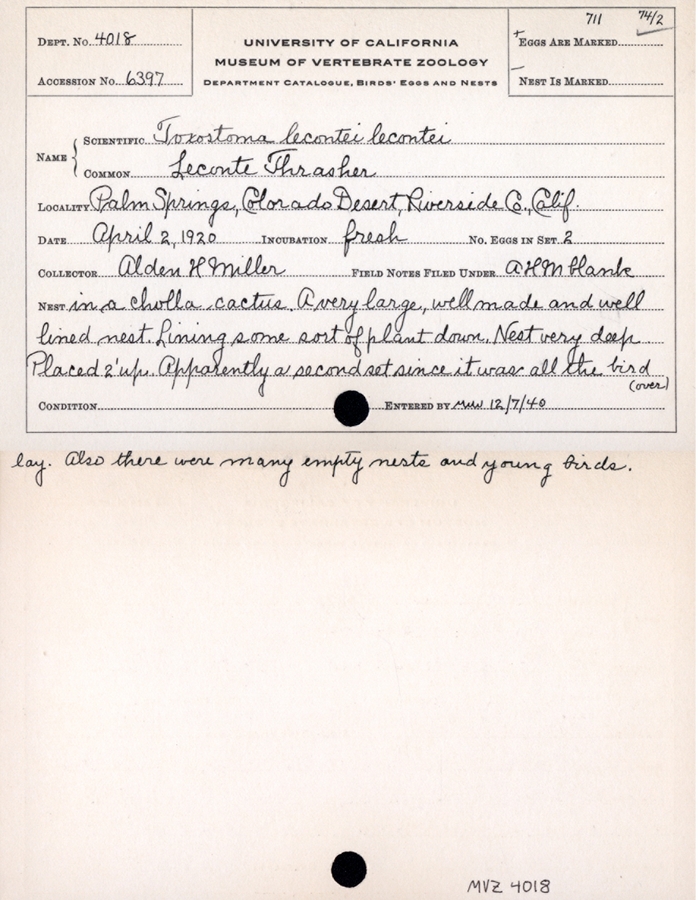 711 74/2
DEPT. NO. 4018
UNIVERSITY OF CALIFORNIA
+ EGGS ARE MARKED
MUSEUM OF VERTEBRATE ZOOLOGY
ACCESSION NO. 6397
DEPARTMENT CATALOGUE, BIRDS' EGGS AND NESTS
— NEST IS MARKED
NAME { SCIENTIFIC Toxostoma lecontei lecontei
COMMON Leconte Thrasher
LOCALITY Palm Springs, Colorado Desert, Riverside Co., Calif.
DATE April 2, 1920 INCUBATION fresh NO. EGGS IN SET 2
COLLECTOR Alden H Miller FIELD NOTES FILED UNDER AHM blank
NEST in a cholla cactus. A very large, well made and well
lined nest. Lining some sort of plant down. Nest very deep
Placed 2' up. Apparently a second set since it was all the bird
(over)
CONDITION ENTERED BY MW 12/7/40
lay. Also there were many empty nests and young birds.
MVZ 4018